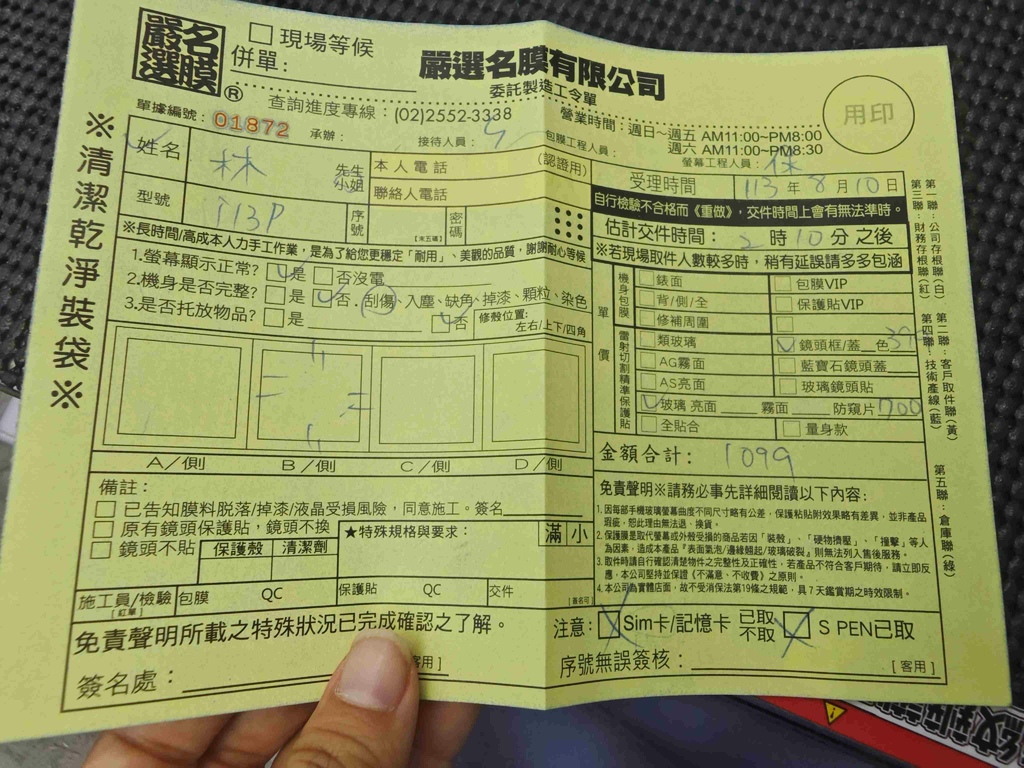 嚴選名膜®
□現場等候
併單:
嚴選名膜有限公司
委託製造工令單
用印
查詢進度專線:(02)2552-3338
營業時間:週日~週五 AM11:00~PM8:00
週六 AM11:00~PM8:30
單據編號:01872 承辦: 接待人員: 包膜工程人員: 螢幕工程人員:
※清潔乾淨裝袋※
姓名 林 先生 小姐 本人電話 (認證用)
聯絡人電話
型號 I13P 序號 [末五碼] 密碼
受理時間 113年8月10日
自行檢驗不合格而《重做》,交件時間上會有無法準時。
估計交件時間: 2時10分之後
※若現場取件人數較多時,稍有延誤請多多包涵
※長時間/高成本人力手工作業,是為了給您更穩定「耐用」、美觀的品質,謝謝耐心等候
1.螢幕顯示正常?□是 □否沒電
2.機身是否完整?□是 □否,刮傷、入塵、缺角、掉漆、顆粒、染色
3.是否托放物品?□是 □否 修殼位置: 左右/上下/四角
A/側 B/側 C/側 D/側
單價
機身包膜
□錶面 □包膜VIP
□背/側/全 □保護貼VIP
□修補周圍 □
雷射切割精準保護貼
□類玻璃 □鏡頭框/蓋 色 399
□AG霧面 □藍寶石鏡頭蓋
□AS亮面 □玻璃鏡頭貼
□玻璃 亮面 霧面 防窺片 700
□全貼合 □量身款
金額合計: 1099
第一聯:公司存根聯(白) 第二聯:客戶取件聯(黃)
第三聯:財務存根聯(紅) 第四聯:技術產線(藍)
第五聯:倉庫聯(綠)
備註:
□已告知膜料脱落/掉漆/液晶受損風險,同意施工。簽名
□原有鏡頭保護貼,鏡頭不換
□鏡頭不貼 保護殼 清潔劑
★特殊規格與要求: 滿 小
[簽名可]
施工員/檢驗 [紅單] 包膜 QC 保護貼 QC 交件
免責聲明※請務必事先詳細閱讀以下內容:
1.因每部手機玻璃螢幕曲度不同尺寸略有公差,保護粘貼附效果略有差異,並非產品
瑕疵,恕此理由無法退、換貨。
2.保護膜是取代螢幕或外殼受損的商品若因「裝殼」、「硬物擠壓」、「撞擊」等人
為因素,造成本產品『表面氣泡/邊緣翹起/玻璃破裂』則無法列入售後服務。
3.取件時請自行確認清楚物件之完整性及正確性,若產品不符合客戶期待,請立即反
應,本公司堅持並保證《不滿意、不收費》之原則。
4.本公司為實體店面,故不受消保法第19條之規範,具7天鑑賞期之時效限制。
免責聲明所載之特殊狀況已完成確認之了解。
簽名處: 客用]
注意:□Sim卡/記憶卡 已取 不取 □S PEN已取
序號無誤簽核: [客用]